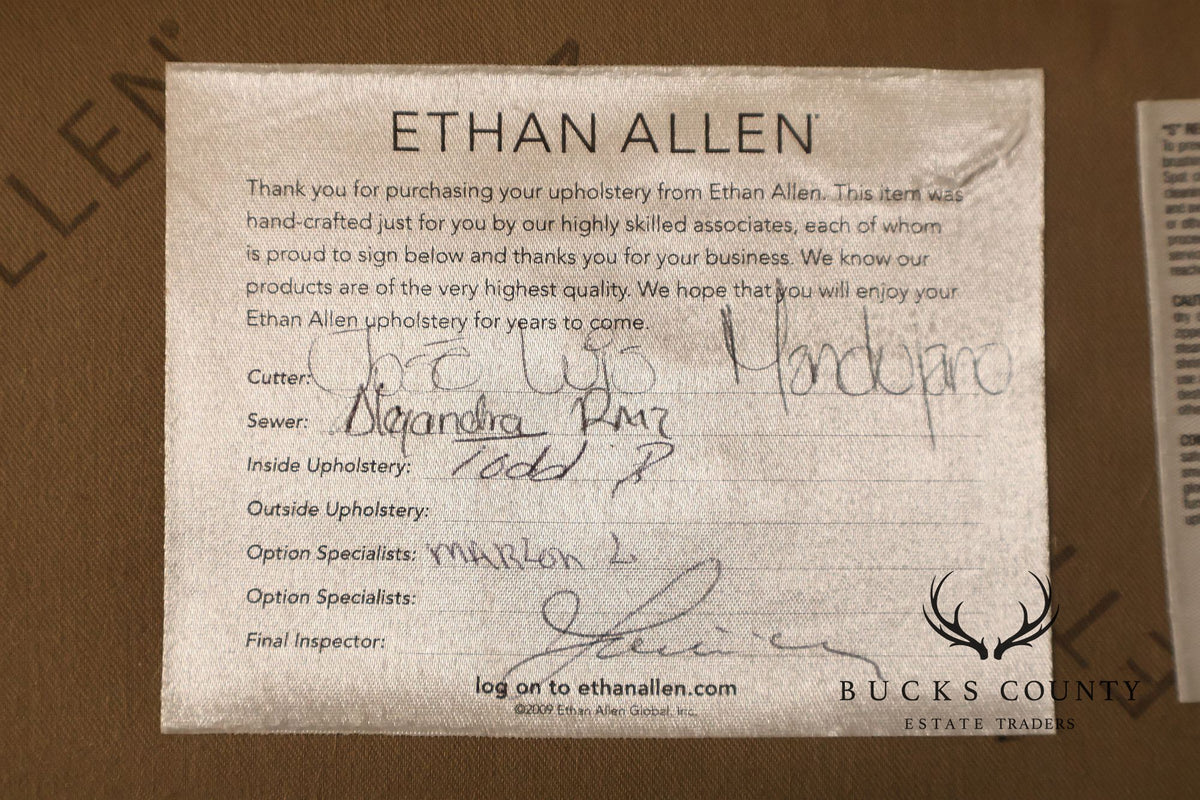 ETHAN ALLEN
Thank you for purchasing your upholstery from Ethan Allen. This item was
hand-crafted just for you by our highly skilled associates, each of whom
is proud to sign below and thanks you for your business. We know our
products are of the very highest quality. We hope that you will enjoy your
Ethan Allen upholstery for years to come.
Cutter: José Luis Mandujano
Sewer: Alejandra RMZ
Inside Upholstery: Todd B
Outside Upholstery:
Option Specialists: MARLON L
Option Specialists:
Final Inspector:
log on to ethanallen.com
©2009 Ethan Allen Global, Inc.
BUCKS COUNTY
ESTATE TRADERS